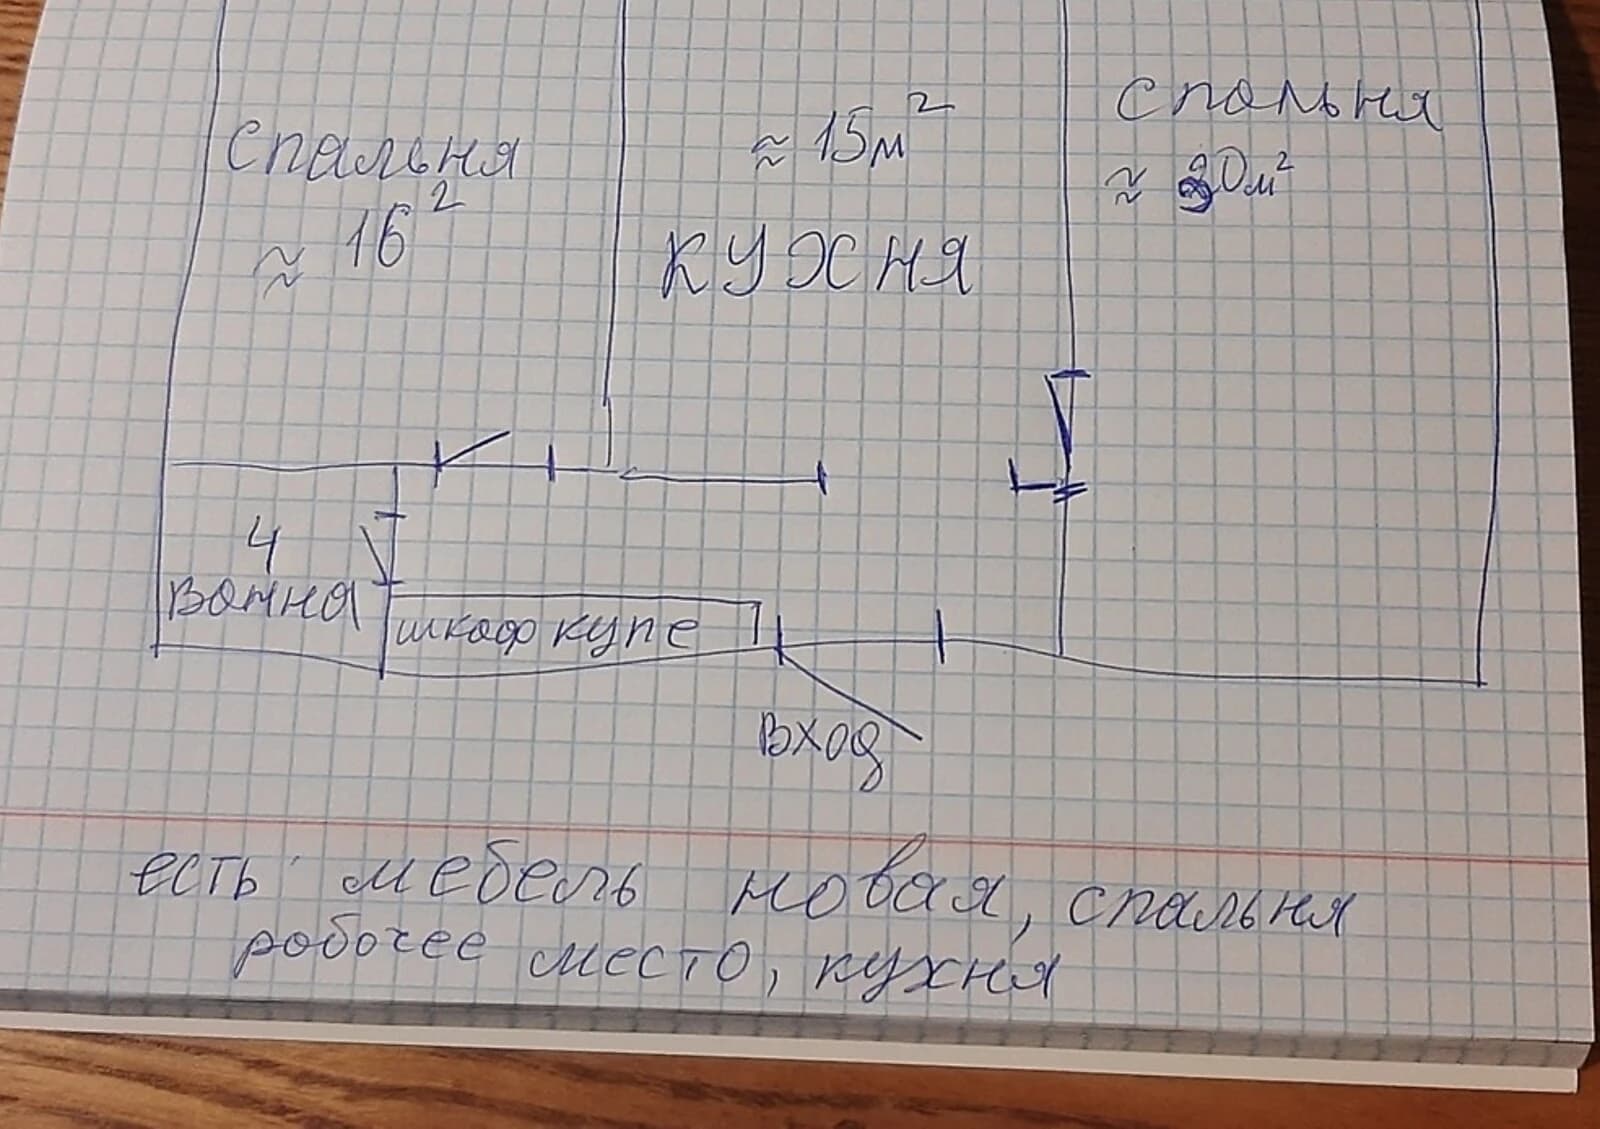 Спальня
≈ 16²
≈ 15м²
КУХНЯ
Спальня
≈ 20м²
4
Ванна
шкаф купе
Вход
есть мебель новая, спальня
рабочее место, кухня